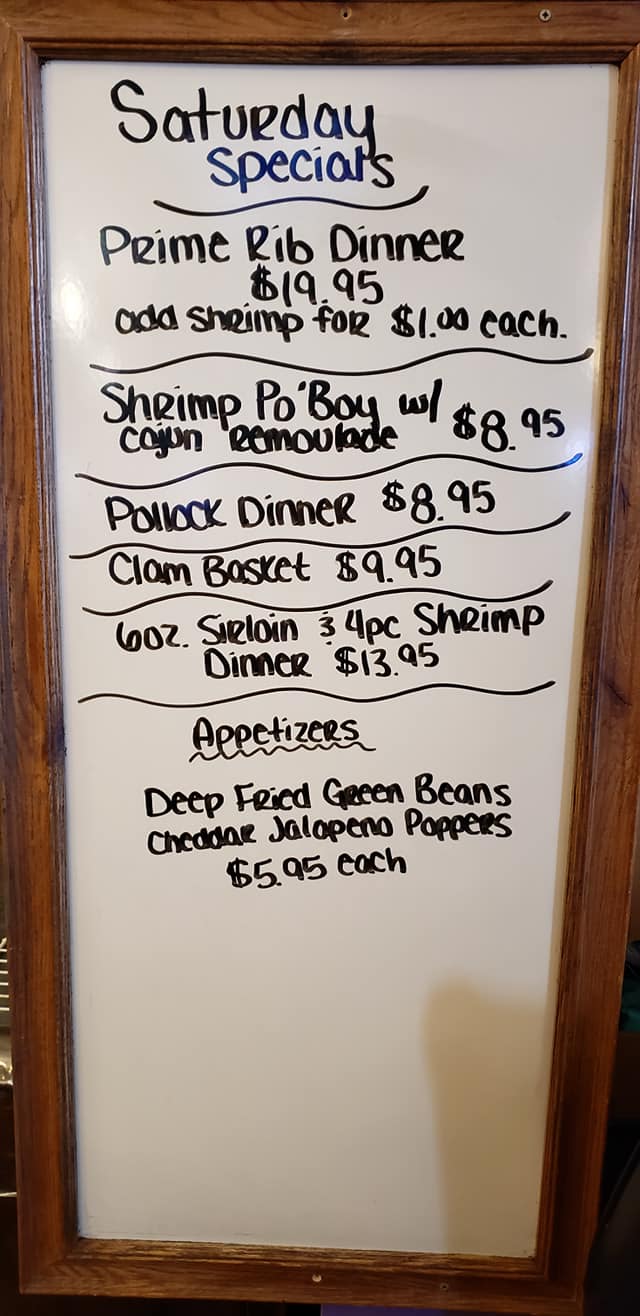 Saturday
Specials
Prime Rib Dinner
$19.95
add shrimp for $1.00 each.
Shrimp Po'Boy w/ $8.95
cajun remoulade
Pollock Dinner $8.95
Clam Basket $9.95
6oz. Sirloin & 4pc Shrimp
Dinner $13.95
Appetizers
Deep Fried Green Beans
Cheddar Jalapeno Poppers
$5.95 each